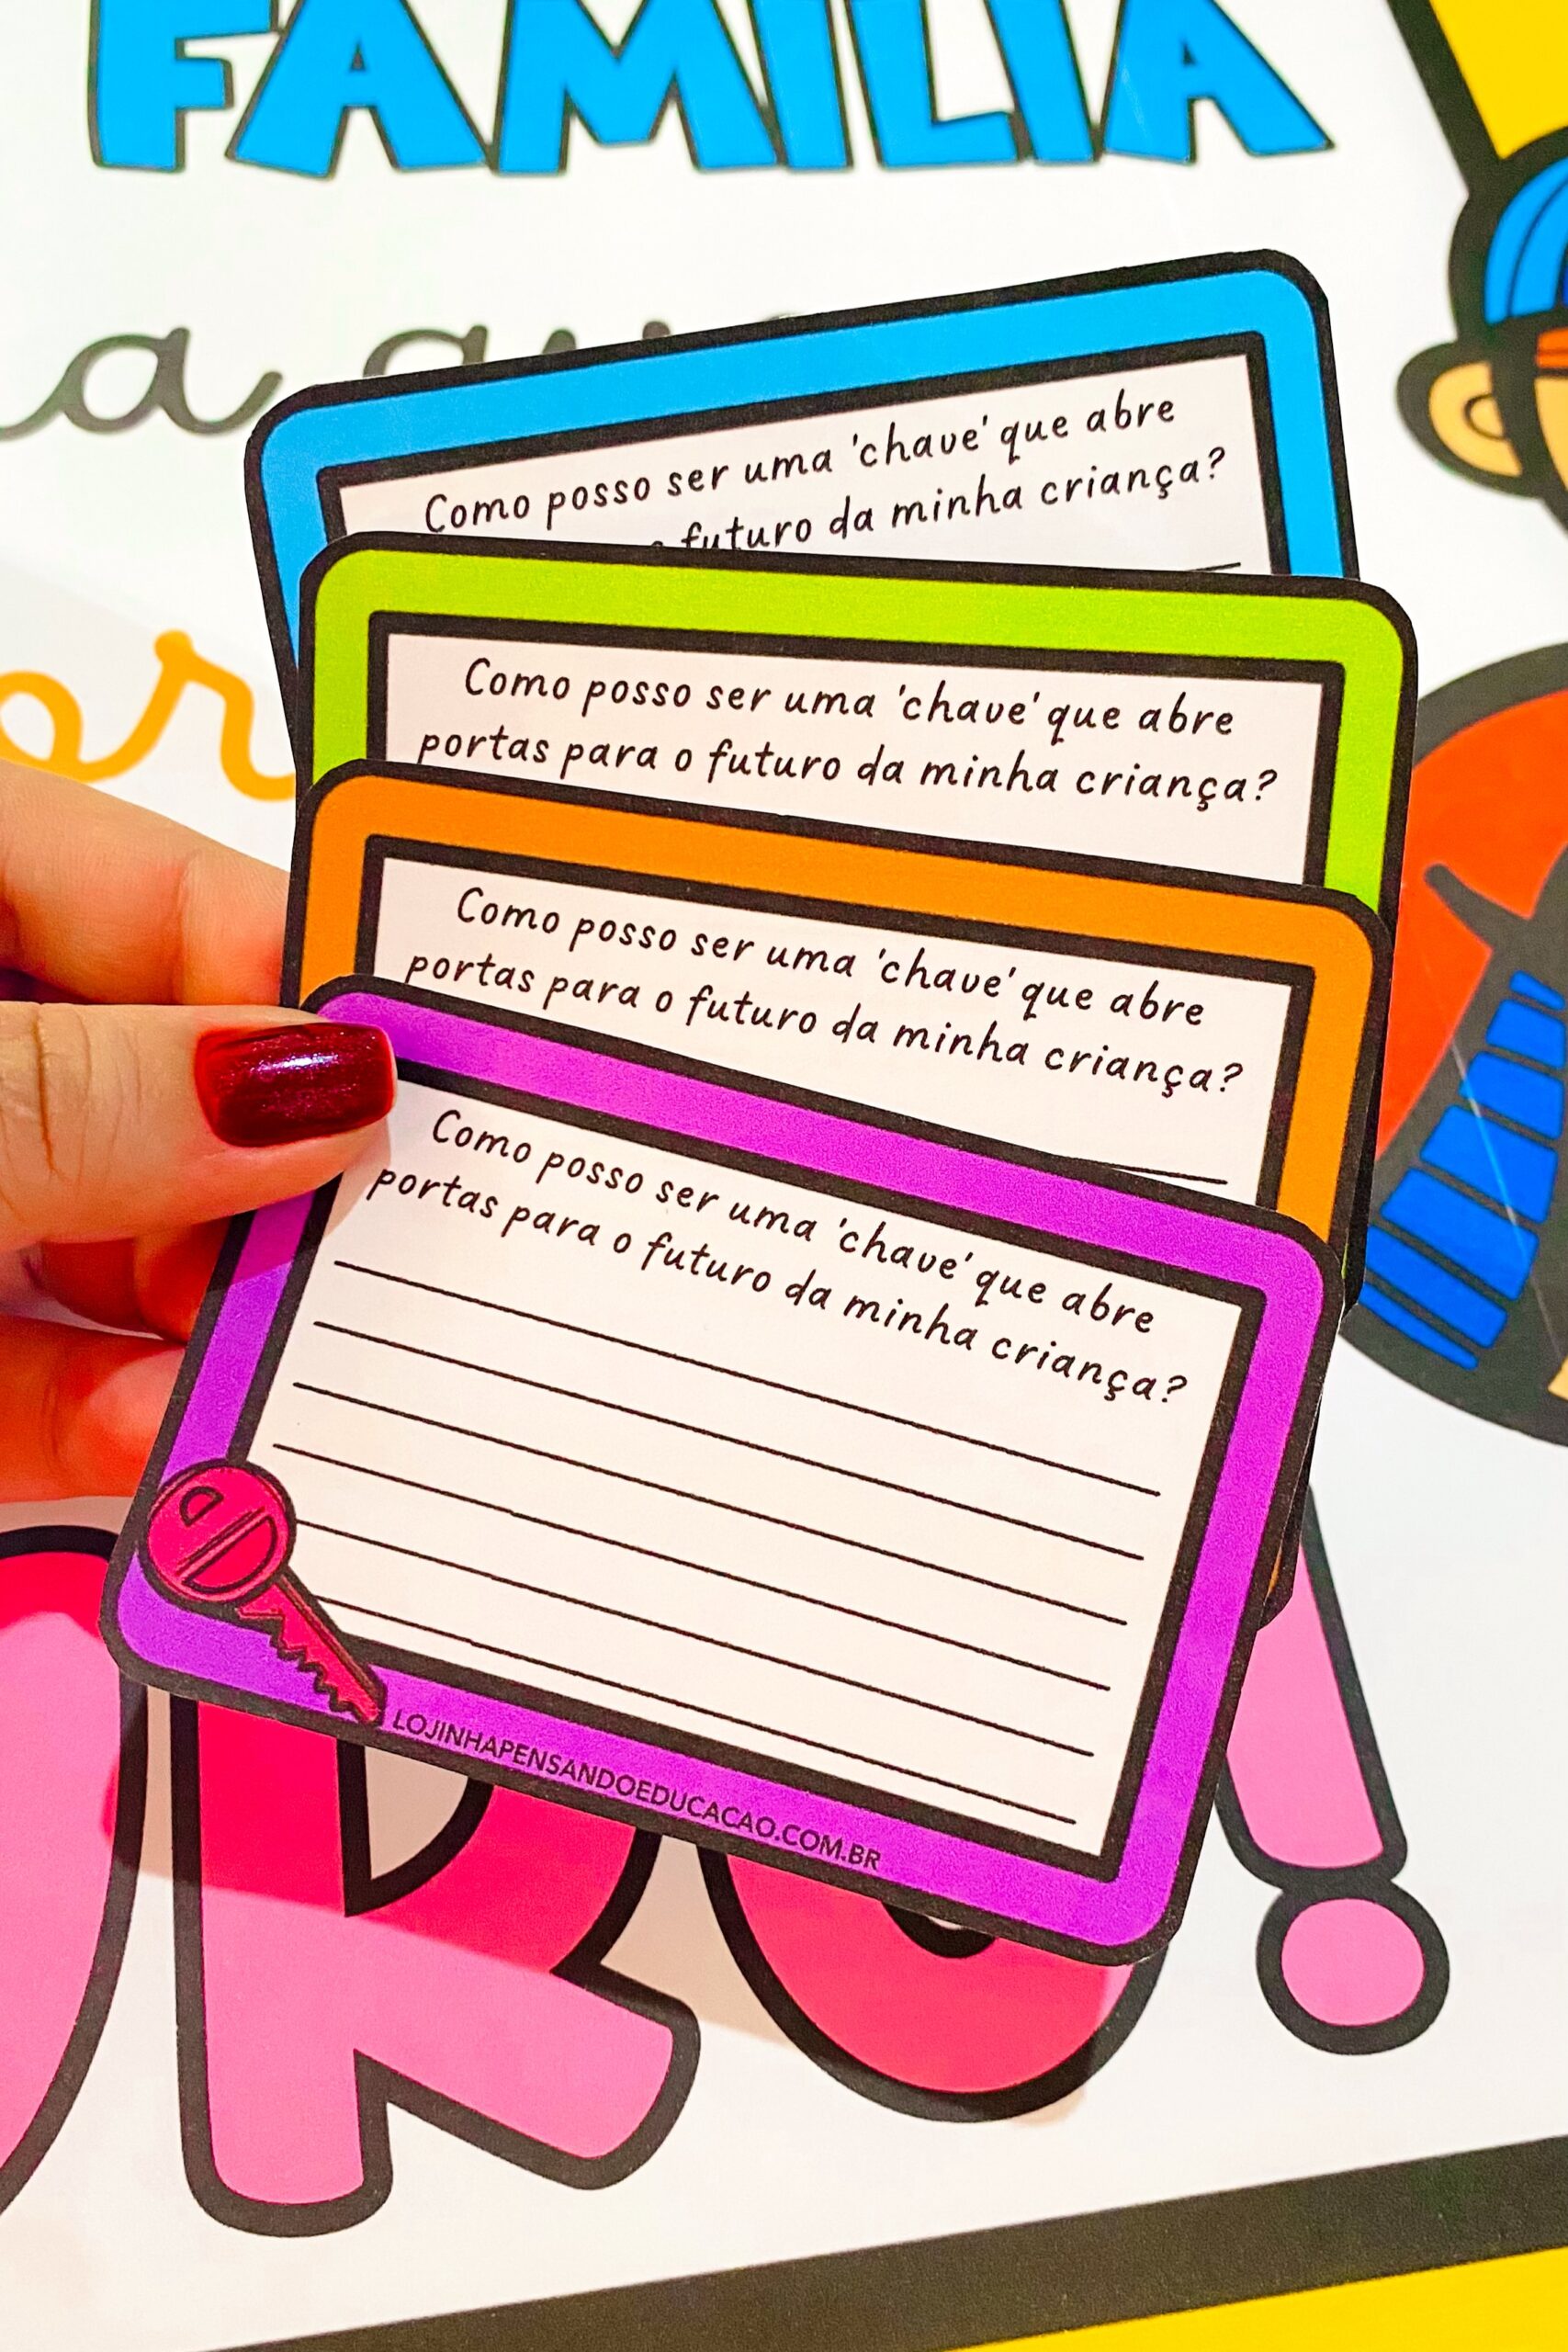 FAMÍLIA
a que
Como posso ser uma 'chave' que abre
futuro da minha criança?
Como posso ser uma 'chave' que abre
portas para o futuro da minha criança?
Como posso ser uma 'chave' que abre
portas para o futuro da minha criança?
Como posso ser uma 'chave' que abre
portas para o futuro da minha criança?
LOJINHAPENSANDOEDUCACAO.COM.BR